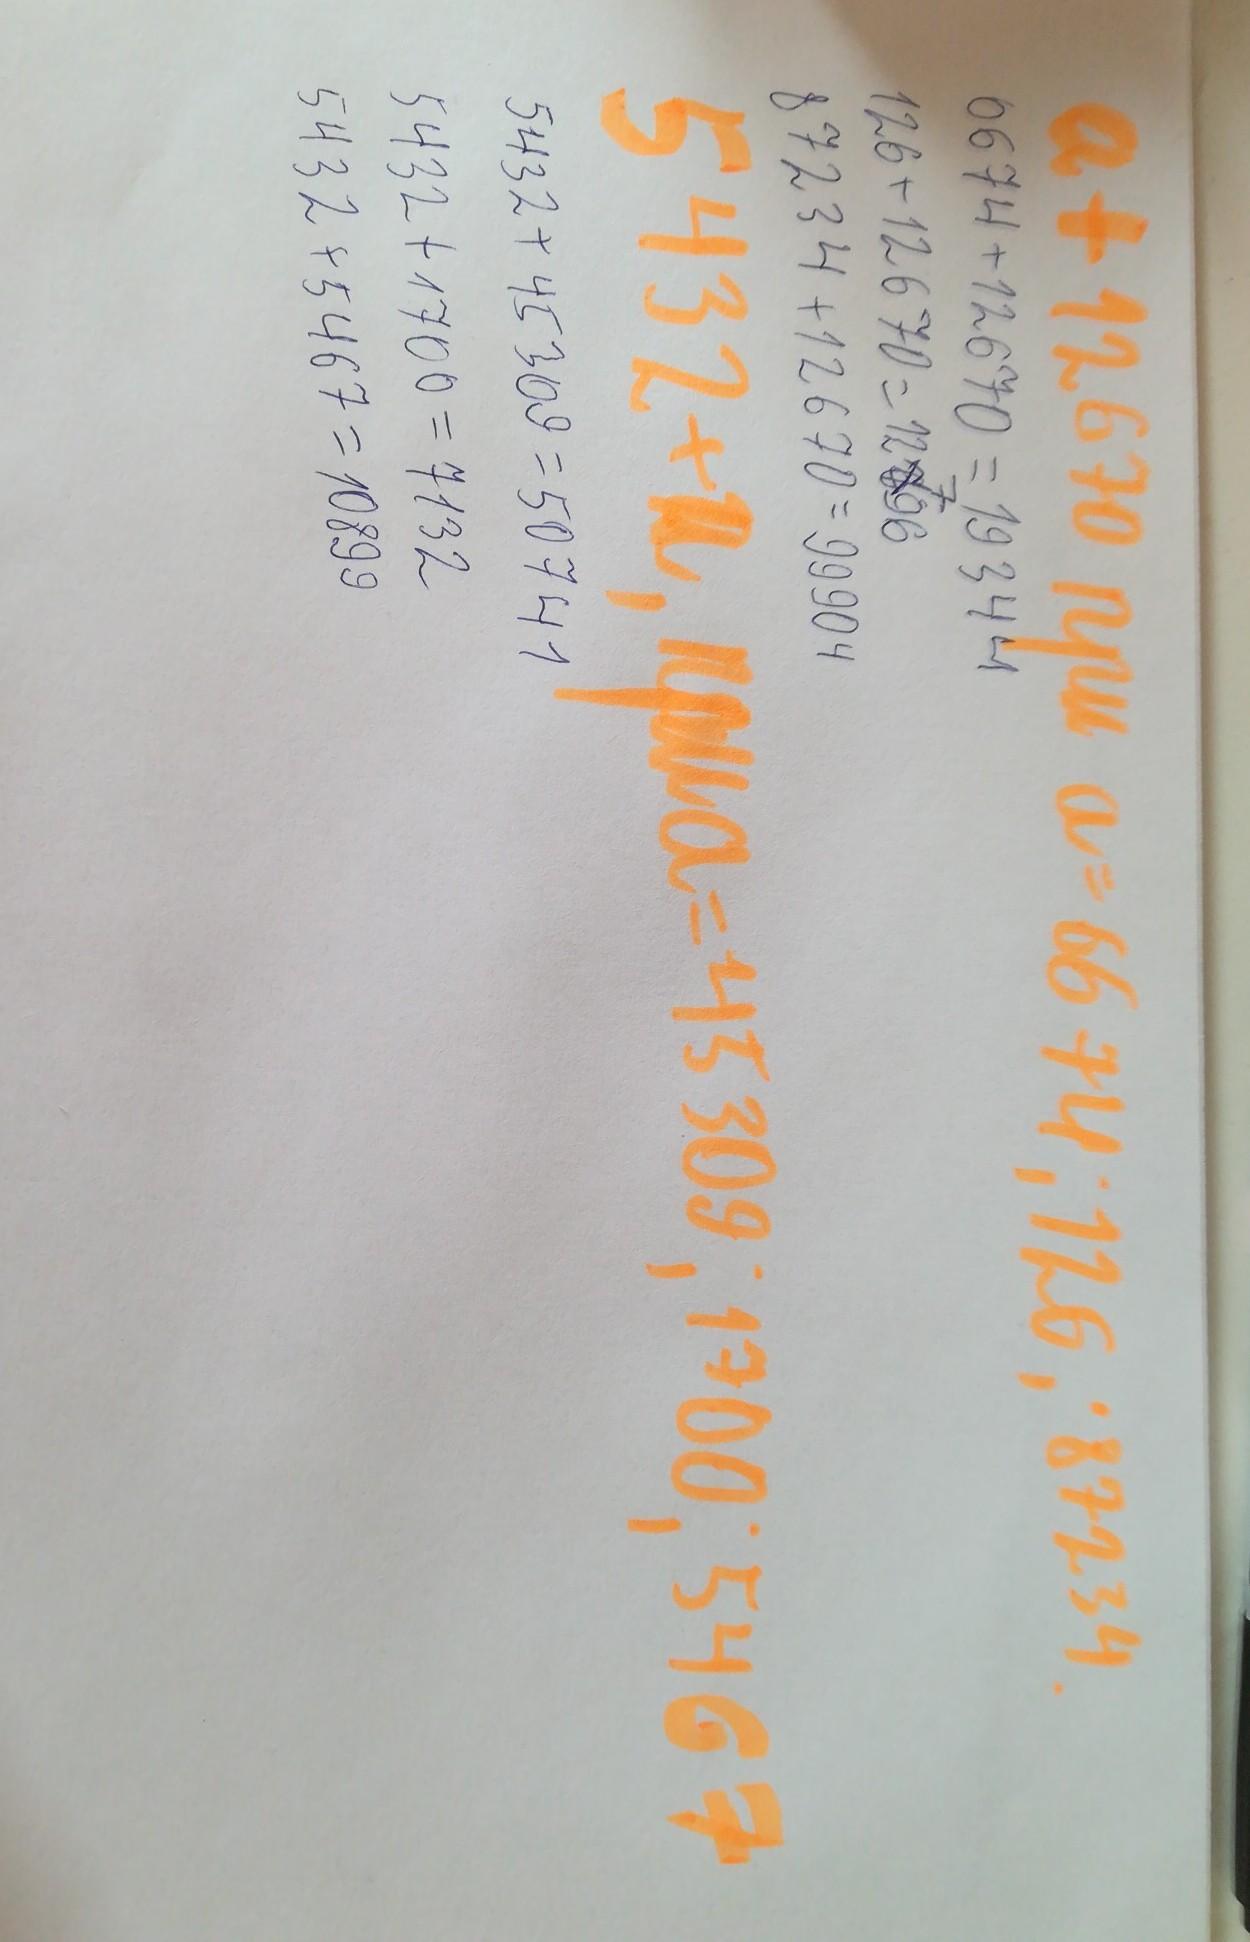 a+12670 при a=6674; 126; 87234.
6674+12670=19344
126+12670=12796
87234+12670=99904
5432+a, при a=45309; 1700; 5467
5432+45309=50741
5432+1700=7132
5432+5467=10899